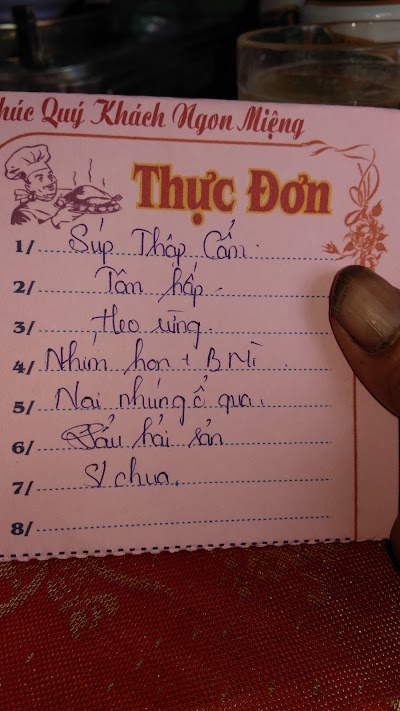 húc Quý Khách Ngon Miệng
Thực Đơn
1/ Súp Thập Cẩm.
2/ Tôm hấp.
3/ Heo rừng.
4/ Nhím hon + B Mì.
5/ Nai nhúng ổ qua.
6/ Lẩu hải sản
7/ S/ chua.
8/